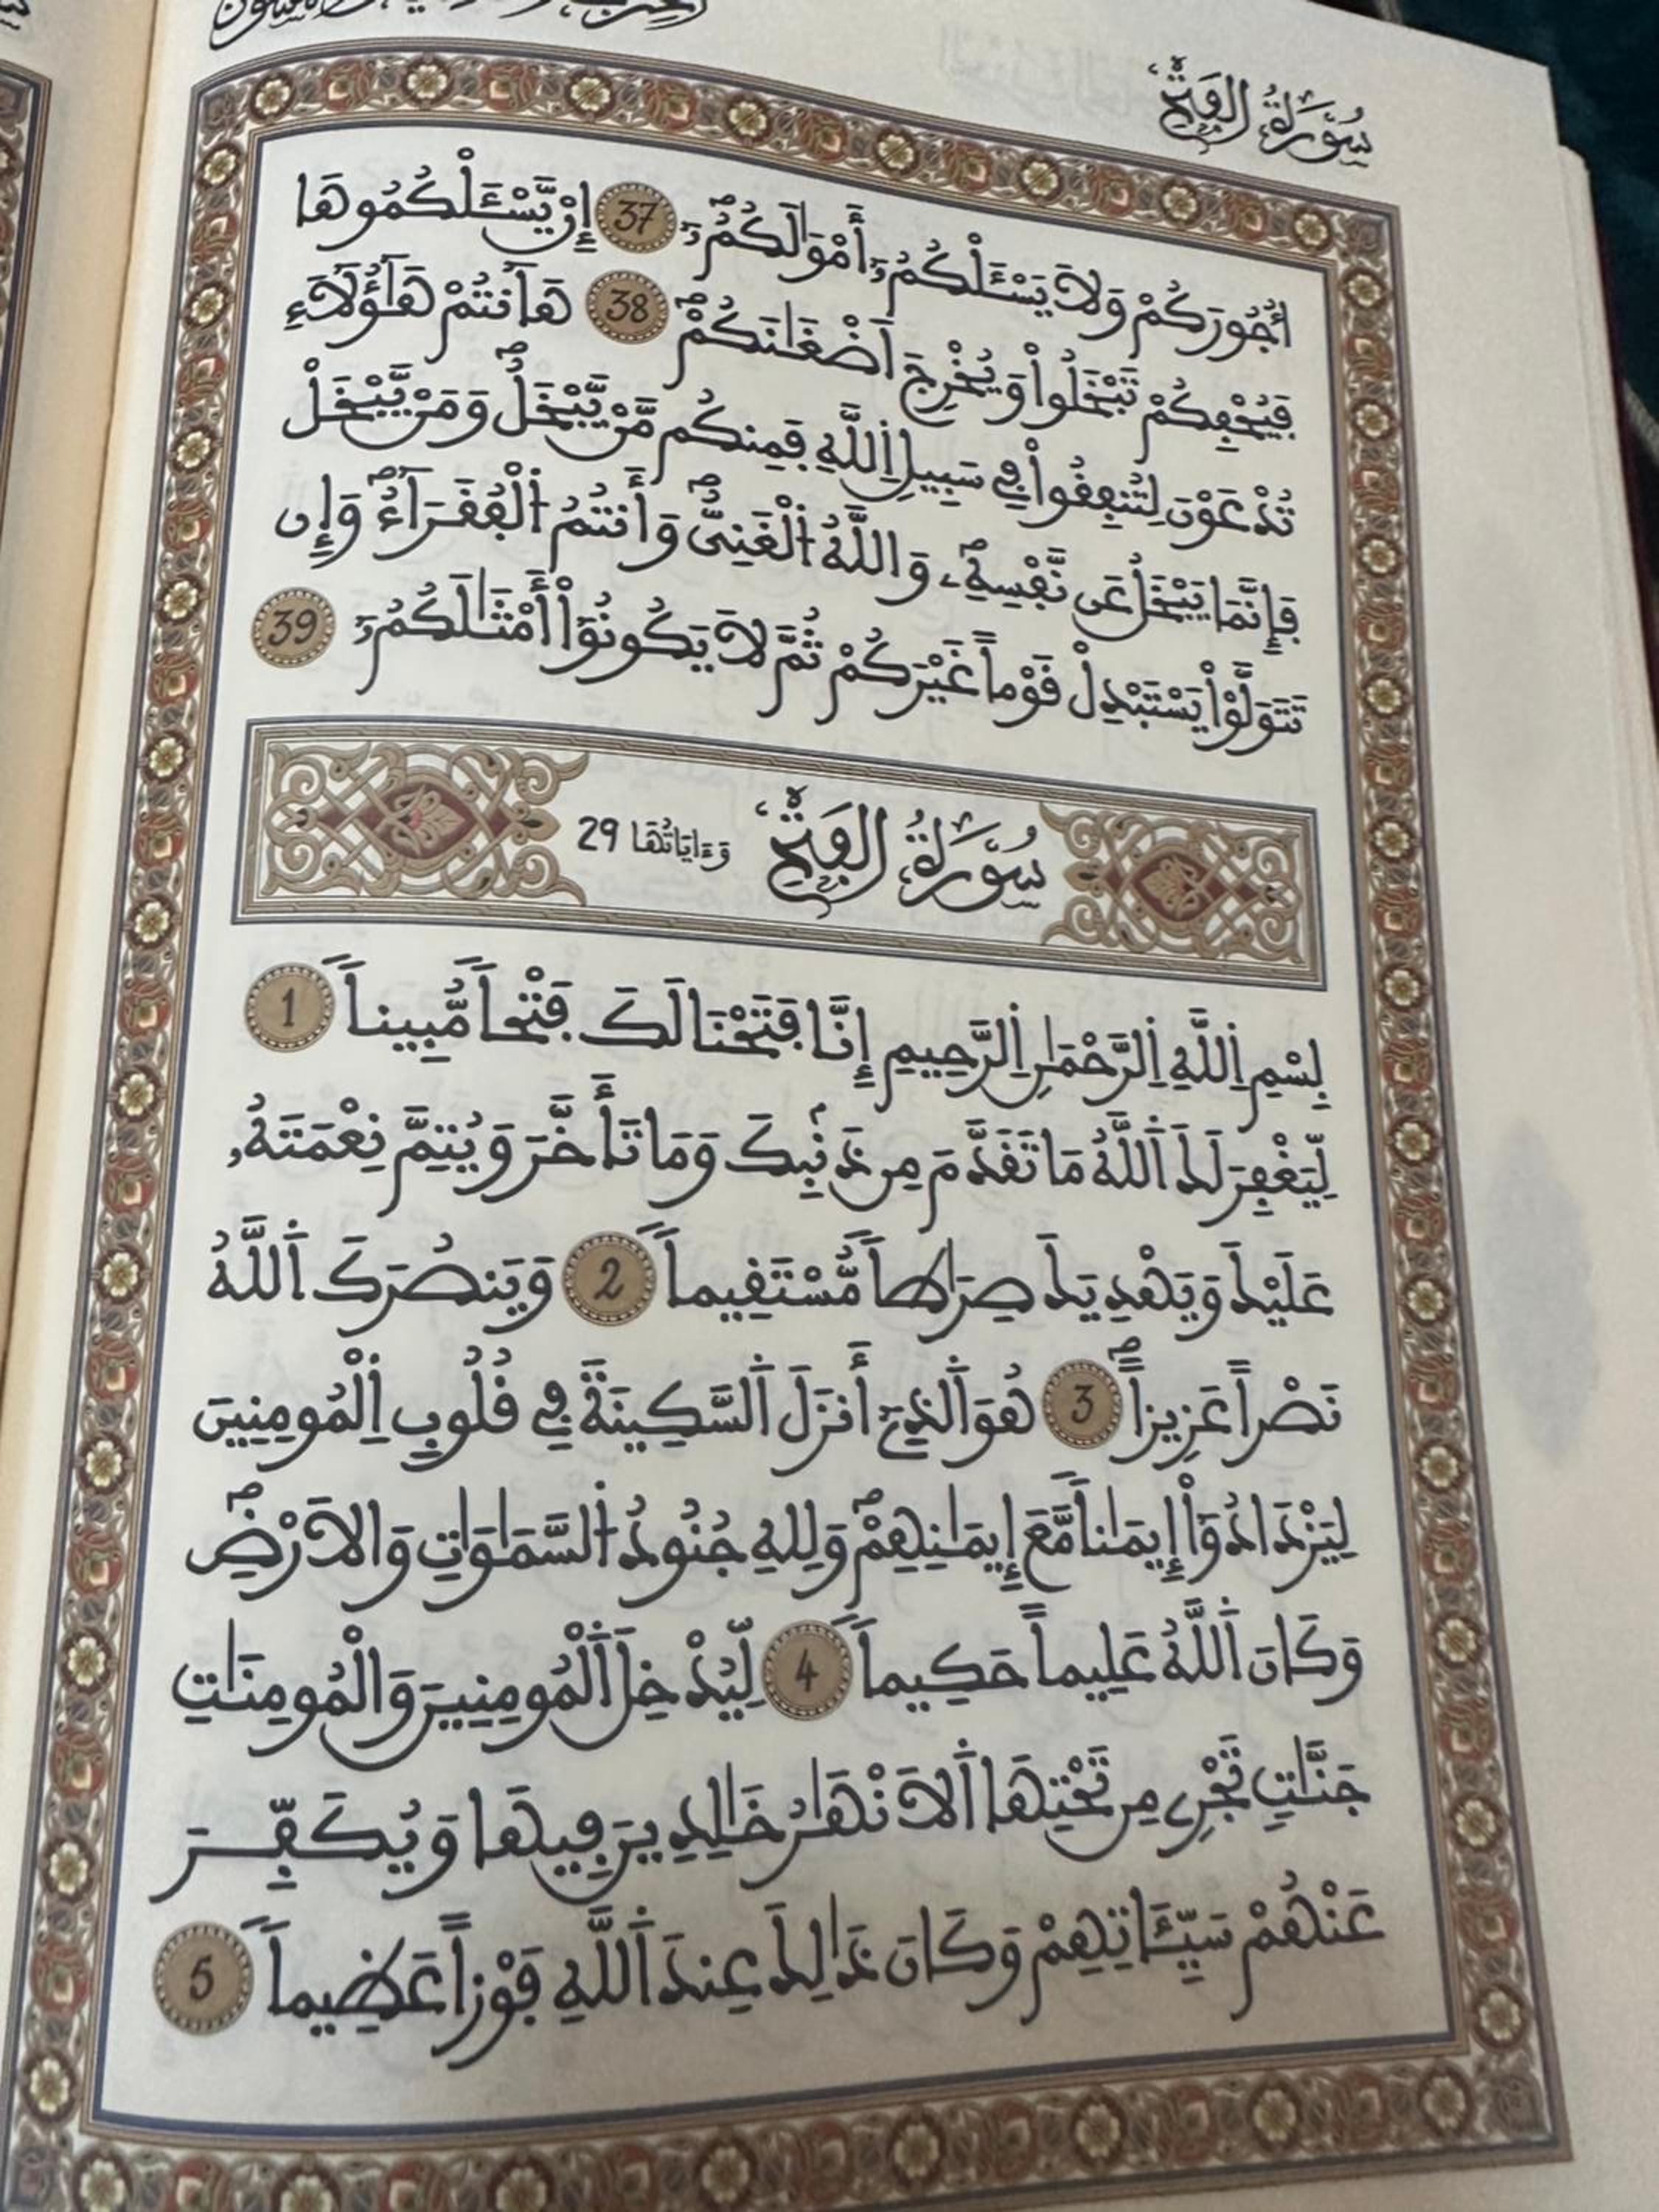 سُورَةُ الفَتْحِ
أُجُورَكُمْ وَلَا يَسْـَٔلْكُمُۥٓ أَمْوَٰلَكُمُۥٓۖ 37 إِنْ يَّسْـَٔلْكُمُوهَا
فَيُحْفِكُمْ تَبْخَلُواْ وَيُخْرِجَ اَضْغَٰنَكُمْۖ 38 هَآنتُمْ هَٰٓؤُلَآءِ
تُدْعَوْنَ لِتُنفِقُواْ فِے سَبِيلِ اِ۬للَّهِ فَمِنكُم مَّنْ يَّبْخَلُۖ وَمَنْ يَّبْخَلْ
فَإِنَّمَا يَبْخَلُ عَن نَّفْسِهِۖۦ وَاللَّهُ اُ۬لْغَنِيُّۖ وَأَنتُمُ اُ۬لْفُقَرَآءُۖ وَإِن
تَتَوَلَّوْاْ يَسْتَبْدِلْ قَوْماً غَيْرَكُمْ ثُمَّ لَا يَكُونُوٓاْ أَمْثَٰلَكُمُۥٓ 39
سُورَةُ الفَتْحِ وَءَايَاتُهَا 29
بِسْمِ اِ۬للَّهِ اِ۬لرَّحْمَٰنِ اِ۬لرَّحِيمِ إِنَّا فَتَحْنَا لَكَ فَتْحاً مُّبِيناً 1
لِّيَغْفِرَ لَكَ اَ۬للَّهُ مَا تَقَدَّمَ مِن ذَنۢبِكَ وَمَا تَأَخَّرَ وَيُتِمَّ نِعْمَتَهُۥ
عَلَيْكَ وَيَهْدِيَكَ صِرَٰطاً مُّسْتَقِيماً 2 وَيَنصُرَكَ اَ۬للَّهُ
نَصْراً عَزِيزاًۖ 3 هُوَ اَ۬لذِےٓ أَنزَلَ اَ۬لسَّكِينَةَ فِے قُلُوبِ اِ۬لْمُومِنِينَ
لِيَزْدَادُوٓاْ إِيمَٰناً مَّعَ إِيمَٰنِهِمْۖ وَلِلهِ جُنُودُ اُ۬لسَّمَٰوَٰتِ وَالَارْضِۖ
وَكَانَ اَ۬للَّهُ عَلِيماً حَكِيماً 4 لِّيُدْخِلَ اَ۬لْمُومِنِينَ وَالْمُومِنَٰتِ
جَنَّٰتٍ تَجْرِے مِن تَحْتِهَا اَ۬لَانْهَٰرُ خَٰلِدِينَ فِيهَا وَيُكَفِّرَ
عَنْهُمْ سَيِّـَٔاتِهِمْ وَكَانَ ذَٰلِكَ عِندَ اَ۬للَّهِ فَوْزاً عَظِيماً 5